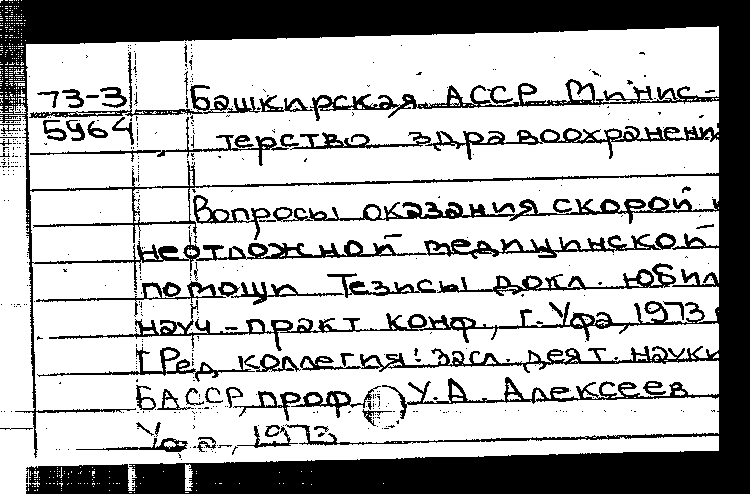 73-3 Башкирская АССР Минис-
5964 терство здравоохранени
Вопросы оказания скорой и
неотложной медицинской
помощи Тезисы докл. юбил
науч-практ конф., г. Уфа, 1973 г
[Ред коллегия: засл. деят. науки
БАССР, проф У.А. Алексеев
Уфа, 1973